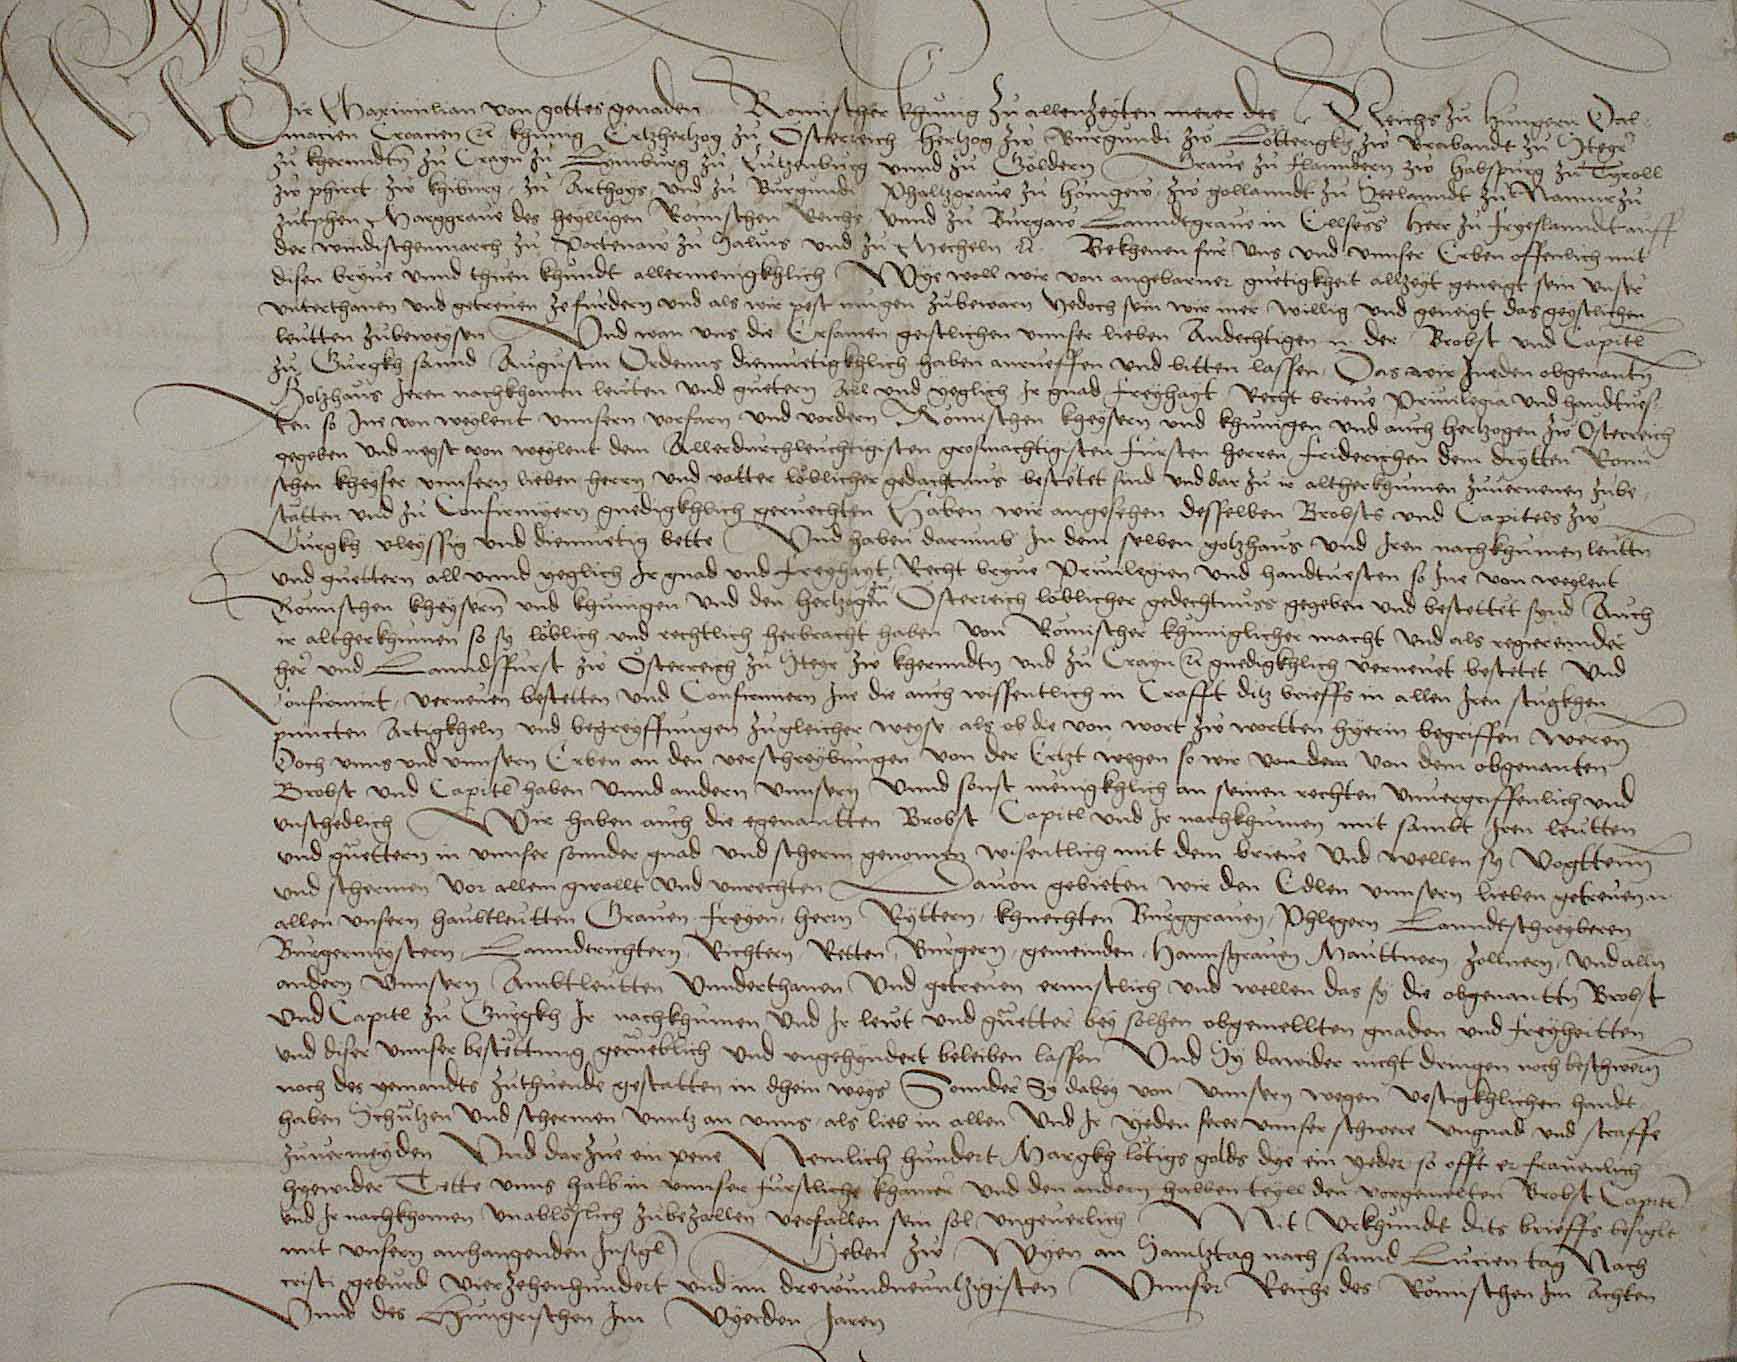 Wir Maximilian von gottes genaden Romischer khunig zu allenzeyten merer des Reichs zu Hungern Dal-
macien Croacien etc khunig Ertzhertzog zu Osterreich Hertzog zw Burgundi zw Lotterigkh zw Brabandt zu Steyr
zu khernndtn zu Crayn zu Lymburg zu Lutzenburg unnd zu Geldern Grave zu flanndern zw habspurg zu Tyroll
zw phirrt zw khiburg zu Arthoys und zu Burgundi Phaltzgrave zu Henigew zw hollanndt zu Seelanndt zu Namur zu
zutphen Marggrave des heylligen Romischen Reichs unnd zu Burgaw Lanndtgrave in Ellsess Herr zu fryeslanndt auff
der windischenmarch zu Portenaw zu Salins und zu Mecheln etc Bekhenen fur uns und unnser Erben offenlich mit
disen bryve unnd thuen khundt allermenigkhlich Wye woll wir von angebarner guetigkheit allzeyt geneigt sein unser
unterthanen und getrewen ze furdern und als wir pest mugen zubewarn yedoch sein wir mer willig und geneigt das geystlichen
leutten zubeweysen Und wan uns die Ersamen geistlichen unnser lieben Andechtigen n der Brobst und Capitl
zu Gurgkh sannd Augustin Ordenns diemuetigkhlich haben anrueffen und bitten lassen Das wir Im den obgenantn
Gotzhaus Iren nachkhomen leuten und guetern All und yeglich Ir gnad freyhayt Recht brieve Privilegia und handtves-
ten so Ine von weylent unnsern vorfarn und vordern Romischen kheysern und khunigen und auch hertzogen zw Osterreich
gegeben und negst von weylent dem Allerdurchleuchtigisten grosmachtigisten fursten herren friderichen dem drytten Romi
schen kheyser unnsern lieben herrn und vatter loblicher gedachtnus bestetet sind und dar zu ir altherkhumen zuvernewen zube-
statten und zu Confirmyern gnedigkhlich geruechten Haben wir angesehen desselben Brobsts und Capitels zw
Gurgkh vleyssig und diemuetig bette Und haben darumb In dem selben gotzhaus und Iren nachkhumen leuttn
und guettern all unnd yeglich Ir gnad und freyhayt Recht bryve Privilegien und handtvesten so Ine von weylent
Romischen kheysern und khunigen und den hertzogen zu Osterreich loblicher gedechtnuss gegeben und bestettet synd Auch
ir altherkhumen so sy loblich und rechtlich herbracht haben von Romischer khuniglicher macht und als regierennder
her und Lanndsfurst zw Osterreich zu Steyr zw khernndtn und zu Crayn etc gnedigkhlich vernewet bestetet und
Confirmirt, vernewen bestetten und Confirmiern Ine die auch wissentlich in Crafft ditz brieffs in allen Iren stugkhen
puncten Artigkheln und begreyffungen zugleicher weyse als ob die von wort zw wortten hyerin begriffen weren
Doch unns und unnsern Erben an den verschreybungen von der Ertzt wegen so wir von dem obgenanten
Brobst und Capitl haben unnd andern unnsern unnd sonst menigkhlich an seinen rechten unvergriffenlich und
unschedlich Wir haben auch die egenantten Brobst Capitl und Ir nachkhumen mit sambt Iren leutten
und guettern in unnser sonnder gnad und scherm genomen wisentlich mit dem brieve Und wellen sy vogttenn
und schermen vor allem gwallt und unrechten Davon gebieten wir den Edlen unnsern lieben getreuen n
allen unsern haubtleutten Graven freyen herrn Ryttern khnechten Burggraven Phlegern Lanndtschreyberen
Burgermeystern Lanndtrichtern Richtern Retten Burgern gemeinden Hannsgraven Mauttnern zollnern und alln
andern unnsern Ambtleutten unnderthanen und getreuen ernnstlich und wellen das sy die obgenanttn Brobst
und Capitl zu Gurgkh Ir nachkhumen und Ir lewt und guetter bey solhen obgemellten gnaden und freyheitten
und diser unnser bestettung geruehlich und ungehyndert beleiben lassen Und Sy dawider nicht dringen noch beschwern
noch des yemandts zuthuende gestatten in dhein weys Sonnder Sy dabey von unnsern wegen vestigkhlichen handt-
haben Schutzen und schermen unntz an unns als lieb in allen und Ir yeden seye unnser schwere ungnad und straffe
zuvermeyden Und darzue ein pene Nemlich hundert Margkh lotigs golds dye ein yeder so offt er frauenlich
hyewider Tette unns halb in unnser furstliche khamer und den andern halben teyll den vorgemelten Brobst Capitl
und Ir nachkhomen unabloslich zubezallen verfallen sein sol ungeverlich Mit Urkhundt dits brieffs besiglt
mit unsern anhangenden Insigl Geben zw Wyen an Sambtztag nach sannd Lucien tag Nach
cristi geburd vierzehenhundert und im drewundnewntzigisten Unnser Reiche des Romischen Im Achten
Unnd des Hungrischen Im Vyerden Jaren